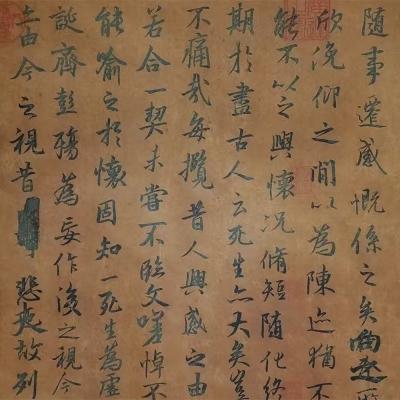 隨事遷感慨係之矣向之
欣俛仰之閒以為陳迹猶不
能不以之興懷況脩短隨化終
期於盡古人云死生亦大矣豈
不痛哉每攬昔人興感之由
若合一契未嘗不臨文嗟悼不
能喻之於懷固知一死生為虛
誕齊彭殤為妄作後之視今
亦由今之視昔悲夫故列